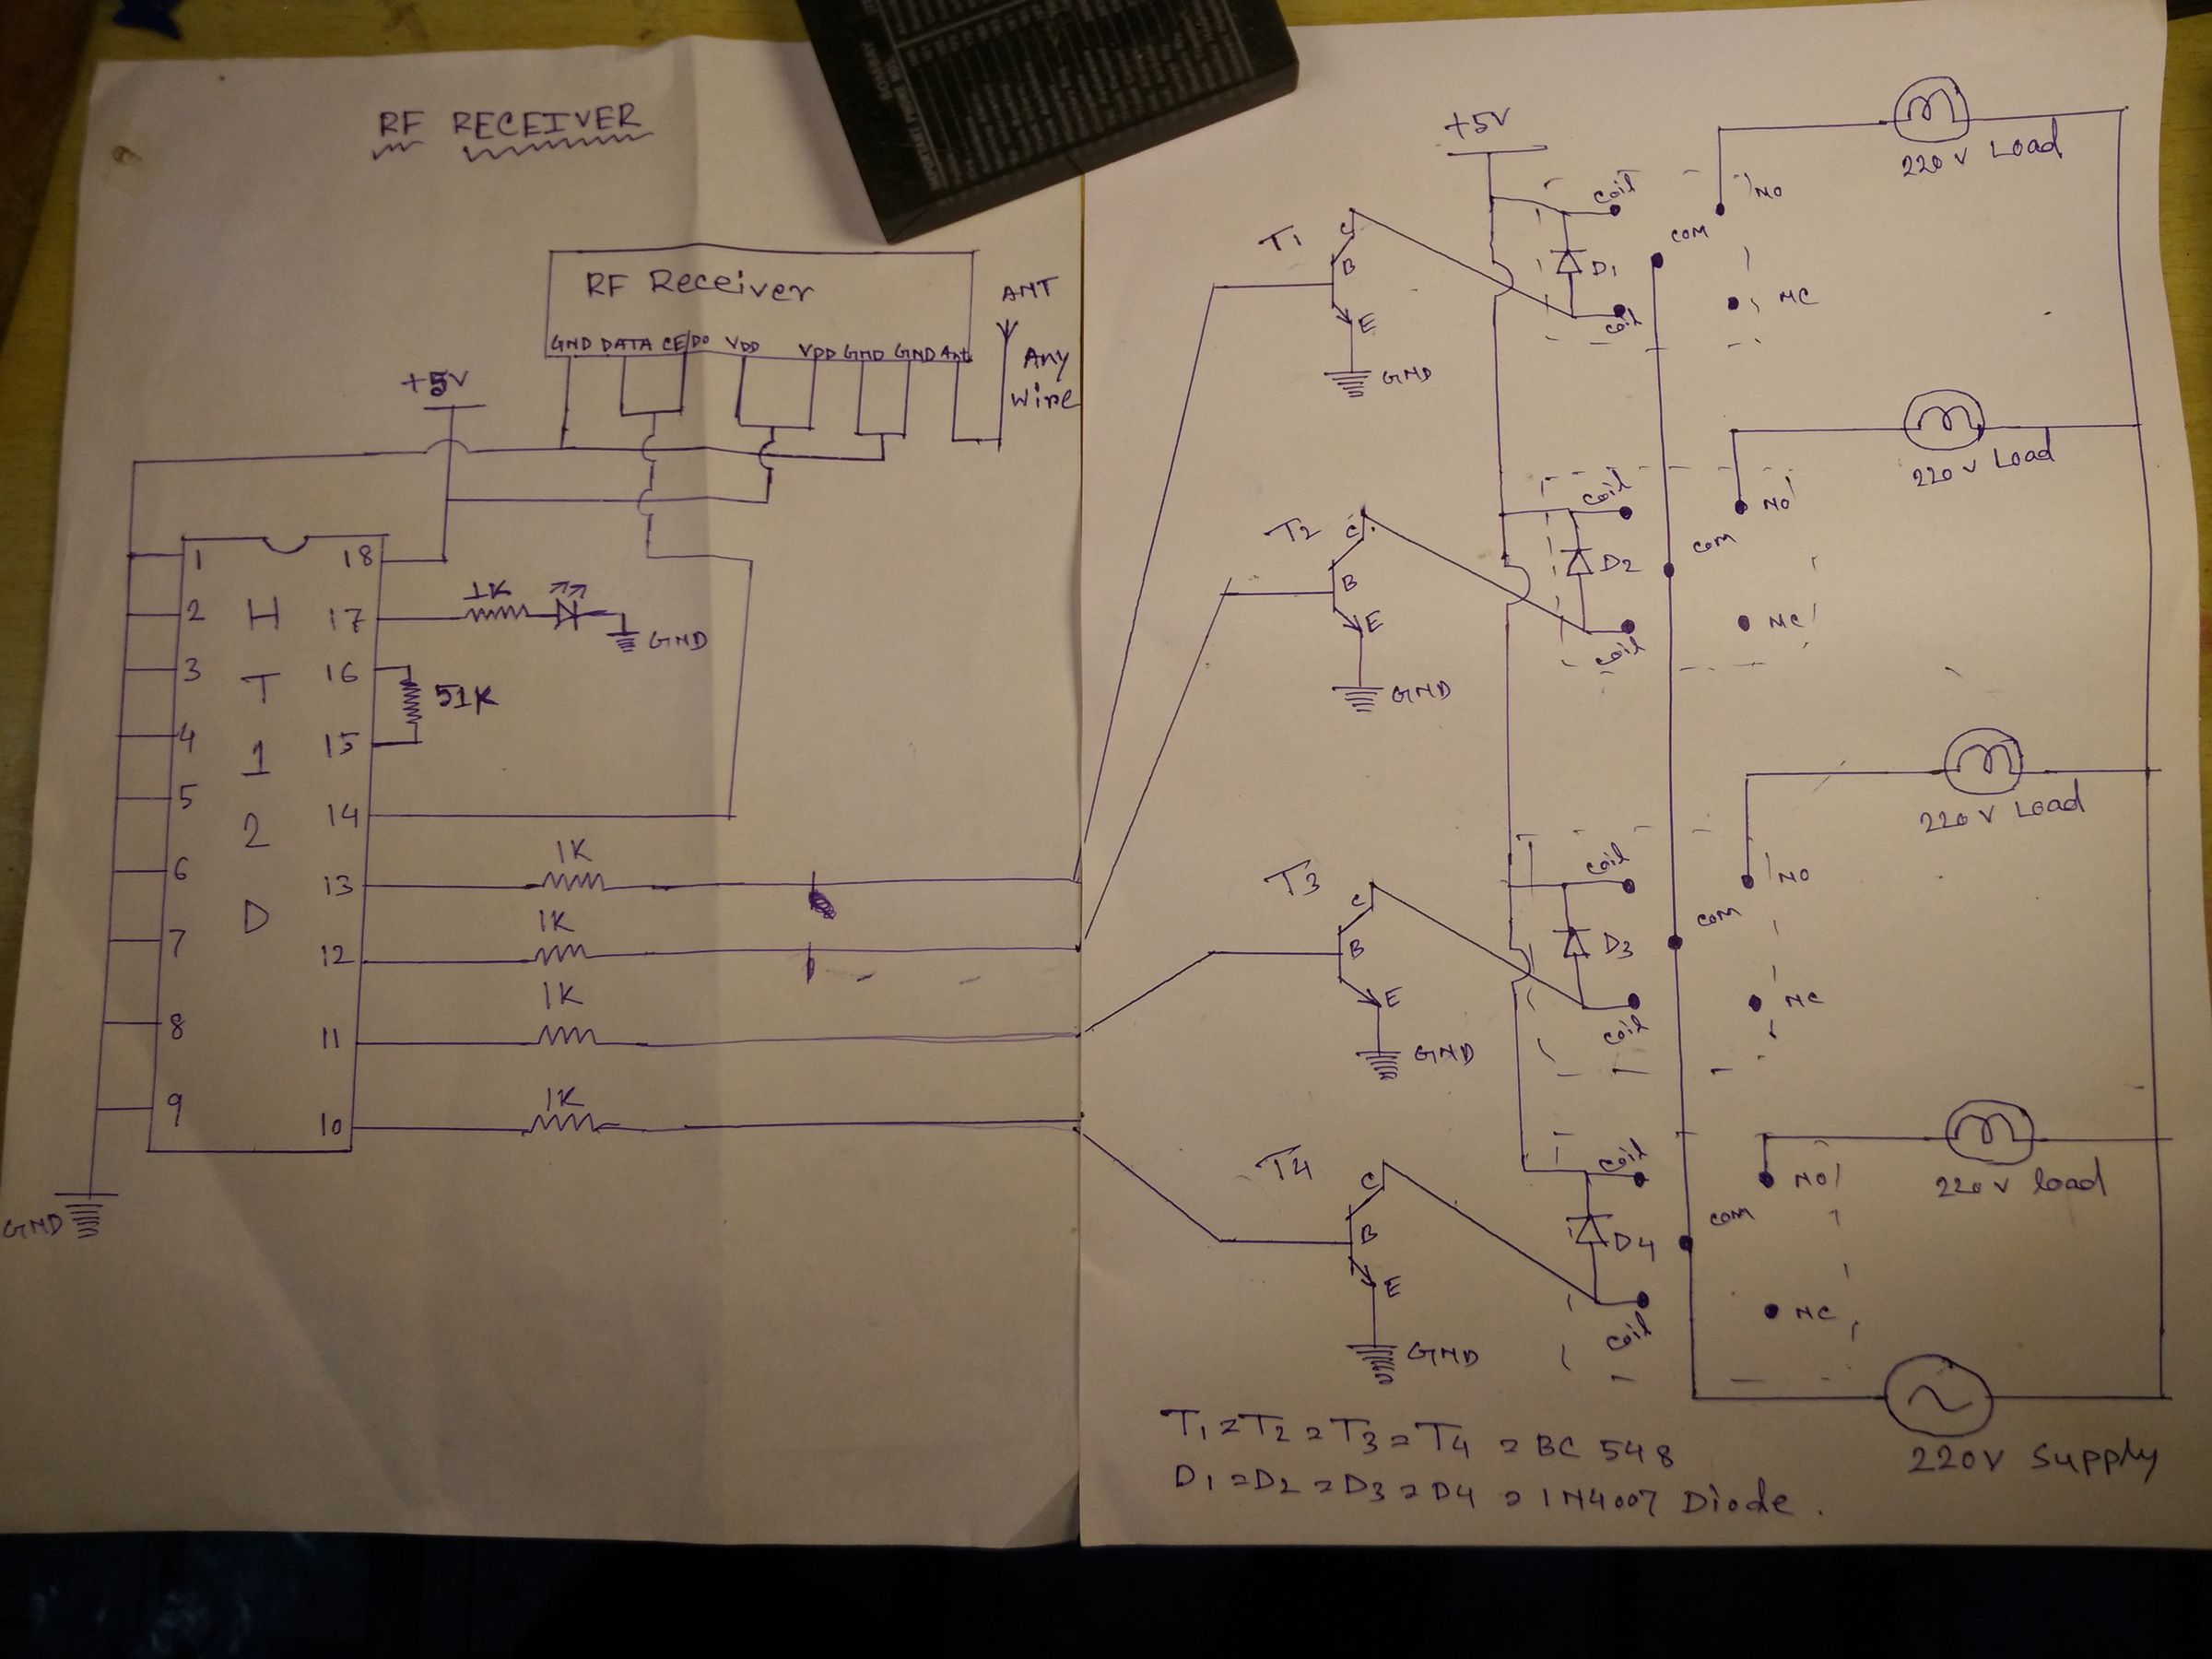 RF RECEIVER
RF Receiver
GND DATA CE/DO VDD VDD GND GND Ant
ANT
Any
Wire
+5V
1
2
3
4
5
6
7
8
9
H
T
1
2
D
18
17
16
15
14
13
12
11
10
1K
GND
51K
1K
1K
1K
1K
GND
+5V
T1
C
B
E
GND
coil
D1
coil
COM
NO
NC
220V Load
T2
C
B
E
GND
coil
D2
coil
COM
NO
NC
220V Load
T3
C
B
E
GND
coil
D3
coil
COM
NO
NC
220V Load
T4
C
B
E
GND
coil
D4
coil
COM
NO
NC
220V load
220V Supply
T1=T2=T3=T4 = BC 548
D1=D2=D3=D4 = 1N4007 Diode.
IMPORTANT PHONE NOS.